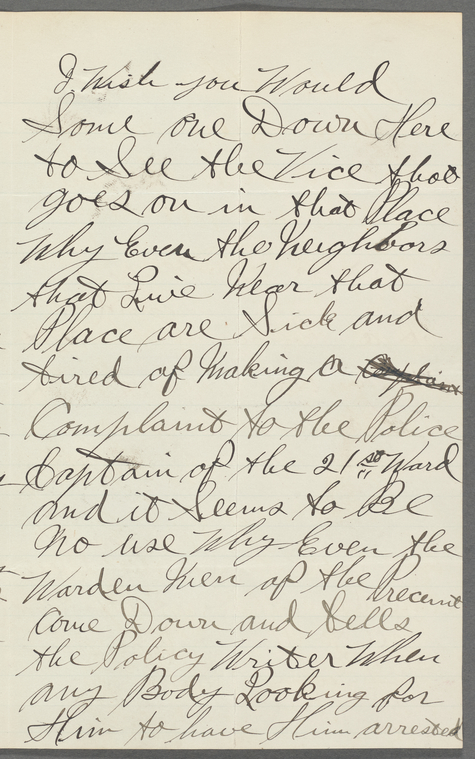 I Wish you Would
Some one Down Here
to See the Vice that
goes on in that Place
Why Even the Neighbors
that Live Near that
Place are Sick and
tired of Making a Captain
Complaint to the Police
Captain of the 21st Ward
and it Seems to Be
No use Why Even the
Warden Men of the Precint
Come Down and tells
the Policy Writer When
any Body Looking for
Him to have Him arrested